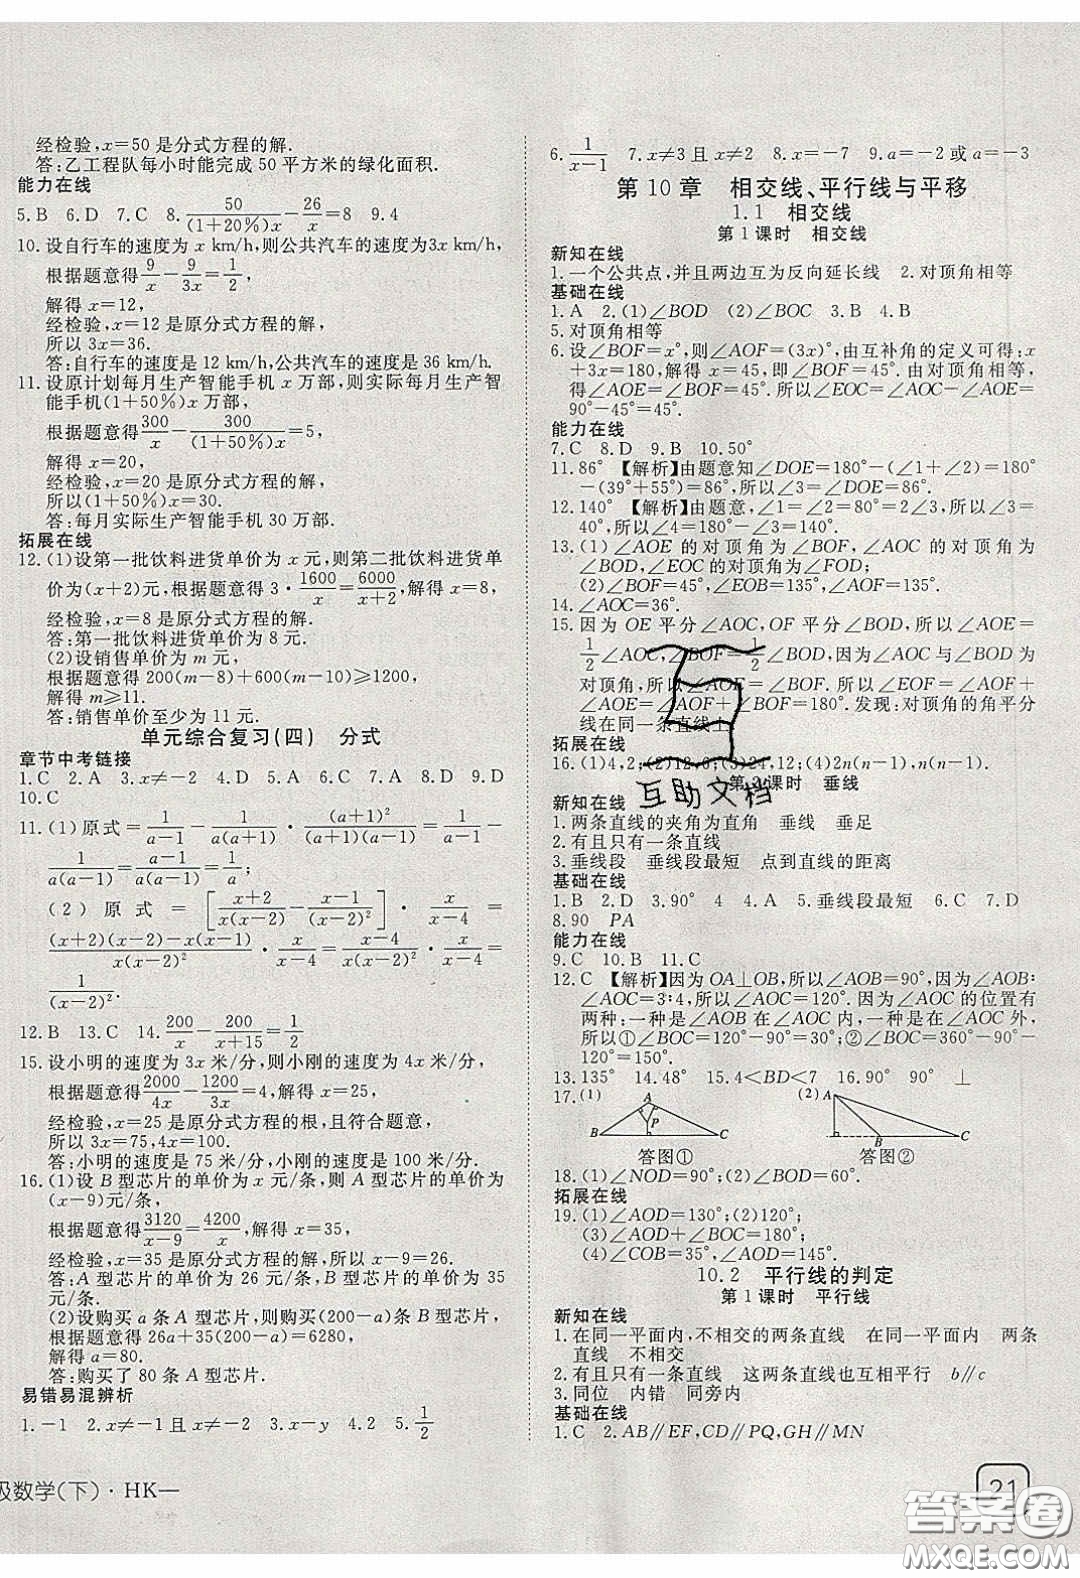 经检验,x=50 是分式方程的解.
答:乙工程队每小时能完成 50 平方米的绿化面积.
能力在线
5.B 6.D 7.C 8.50/((1+20%)x)−26/x=8 9.4
10.设自行车的速度为 x km/h,则公共汽车的速度为3x km/h,
根据题意得9/x−9/3x=1/2,
解得 x=12,
经检验,x=12 是原分式方程的解,
所以 3x=36.
答:自行车的速度是 12 km/h,公共汽车的速度是 36 km/h.
11.设原计划每月生产智能手机 x 万部,则实际每月生产智
能手机(1+50%)x 万部,
根据题意得300/x−300/((1+50%)x)=5,
解得 x=20,
经检验,x=20 是原分式方程的解,
所以(1+50%)x=30.
答:每月实际生产智能手机 30 万部.
拓展在线
12.(1)设第一批饮料进货单价为 x 元,则第二批饮料进货单
价为(x+2)元,根据题意得 3·1600/x=6000/(x+2),解得 x=8,
经检验,x=8 是分式方程的解.
答:第一批饮料进货单价为 8 元.
(2)设销售单价为 m 元,
根据题意得 200(m−8)+600(m−10)⩾1200,
解得 m⩾11.
答:销售单价至少为 11 元.
单元综合复习(四) 分式
章节中考链接
1.C 2.A 3.x≠−2 4.D 5.C 6.A 7.B 8.D 9.D
10.C
11.(1)原式=1/(a−1)−1/(a(a+1))·(a+1)²/((a+1)(a−1))=1/(a−1)−
1/(a(a−1))=(a−1)/(a(a−1))=1/a;
(2)原式=[(x+2)/(x(x−2))−(x−1)/(x−2)²]·x/(x−4)=
((x+2)(x−2)−x(x−1))/(x(x−2)²)·x/(x−4)=(x−4)/(x(x−2)²)·x/(x−4)=
1/(x−2)².
12.B 13.C 14.200/x−200/(x+15)=1/2
15.设小明的速度为 3x 米/分,则小刚的速度为 4x 米/分,
根据题意得2000/4x−1200/3x=4,解得 x=25,
经检验,x=25 是原分式方程的根,且符合题意,
所以 3x=75,4x=100.
答:小明的速度是 75 米/分,小刚的速度是 100 米/分.
16.(1)设 B 型芯片的单价为 x 元/条,则 A 型芯片的单价为
(x−9)元/条,
根据题意得3120/(x−9)=4200/x,解得 x=35,
经检验,x=35 是原分式方程的解,所以 x−9=26.
答:A 型芯片的单价为 26 元/条,B 型芯片的单价为 35
元/条.
(2)设购买 a 条 A 型芯片,则购买(200−a)条 B 型芯片,
根据题意得 26a+35(200−a)=6280,
解得 a=80.
答:购买了 80 条 A 型芯片.
易错易混辨析
1.−1 2.x≠−1 且 x≠−2 3.x−y 4.2 5.1/2
级数学(下)·HK—
6.1/(x−1) 7.x≠3 且 x≠2 8.x=−7 9.a=−2 或 a=−3
第 10 章 相交线、平行线与平移
1.1 相交线
第 1 课时 相交线
新知在线
1.一个公共点,并且两边互为反向延长线 2.对顶角相等
基础在线
1.A 2.(1)∠BOD (2)∠BOC 3.B 4.B
5.对顶角相等
6.设∠BOF=x°,则∠AOF=(3x)°,由互补角的定义可得:x
+3x=180,解得 x=45,即∠BOF=45°.由对顶角相等,
得∠AOE=∠BOF=45°.所以∠EOC=∠AOC−∠AOE=
90°−45°=45°.
能力在线
7.C 8.D 9.B 10.50°
11.86° 【解析】由题意知∠DOE=180°−(∠1+∠2)=180°
−(39°+55°)=86°,所以∠3=∠DOE=86°.
12.140° 【解析】由题意,∠1=∠2=80°=2∠3,所以∠3=
40°,所以∠4=180°−∠3=140°.
13.(1)∠AOE 的对顶角为∠BOF,∠AOF 的对顶角为
∠BOE,∠EOC 的对顶角为∠FOD;
(2)∠BOF=45°,∠EOB=135°,∠AOF=135°.
14.∠AOC=36°.
15.因为 OE 平分∠AOC,OF 平分∠BOD,所以∠AOE=
1/2∠AOC,∠BOF=1/2∠BOD,因为∠AOC与∠BOD为
对顶角,所以∠AOE=∠BOF,所以∠EOF=∠AOF+
∠AOE=∠AOF+∠BOF=180°.发现:对顶角的角平分
线在同一条直线上.
拓展在线
16.(1)4,2;(2)12,6;(3)24,12;(4)2n(n−1),n(n−1).
第 2 课时 垂线
新知在线
1.两条直线的夹角为直角 垂线 垂足
2.有且只有一条直线
3.垂线段 垂线段最短 点到直线的距离
基础在线
1.B 2.D 3.90° 4 4.A 5.垂线段最短 6.C 7.D
8.90 PA
能力在线
9.C 10.B 11.C
12.C 【解析】因为 OA⊥OB,所以∠AOB=90°,因为∠AOB:
∠AOC=3:4,所以∠AOC=120°.因为∠AOC 的位置有
两种:一种是∠AOB 在∠AOC 内,一种是在∠AOC 外,
所以①∠BOC=120°−90°=30°;②∠BOC=360°−90°−
120°=150°.
13.135° 14.48° 15.4<BD<7 16.90° 90° ⊥
17.(1) (2)
A A
P
B C B C
答图① 答图②
18.(1)∠NOD=90°;(2)∠BOD=60°.
拓展在线
19.(1)∠AOD=130°;(2)120°;
(3)∠AOD+∠BOC=180°;
(4)∠COB=35°,∠AOD=145°.
10.2 平行线的判定
第 1 课时 平行线
新知在线
1.在同一平面内,不相交的两条直线 在同一平面内 两条
直线 不相交
2.有且只有一条直线 这两条直线也互相平行 b∥c
3.同位 内错 同旁内
基础在线
1.C 2.AB∥EF,CD∥PQ,GH∥MN
21
互助文档
答案圈
MXQE.COM